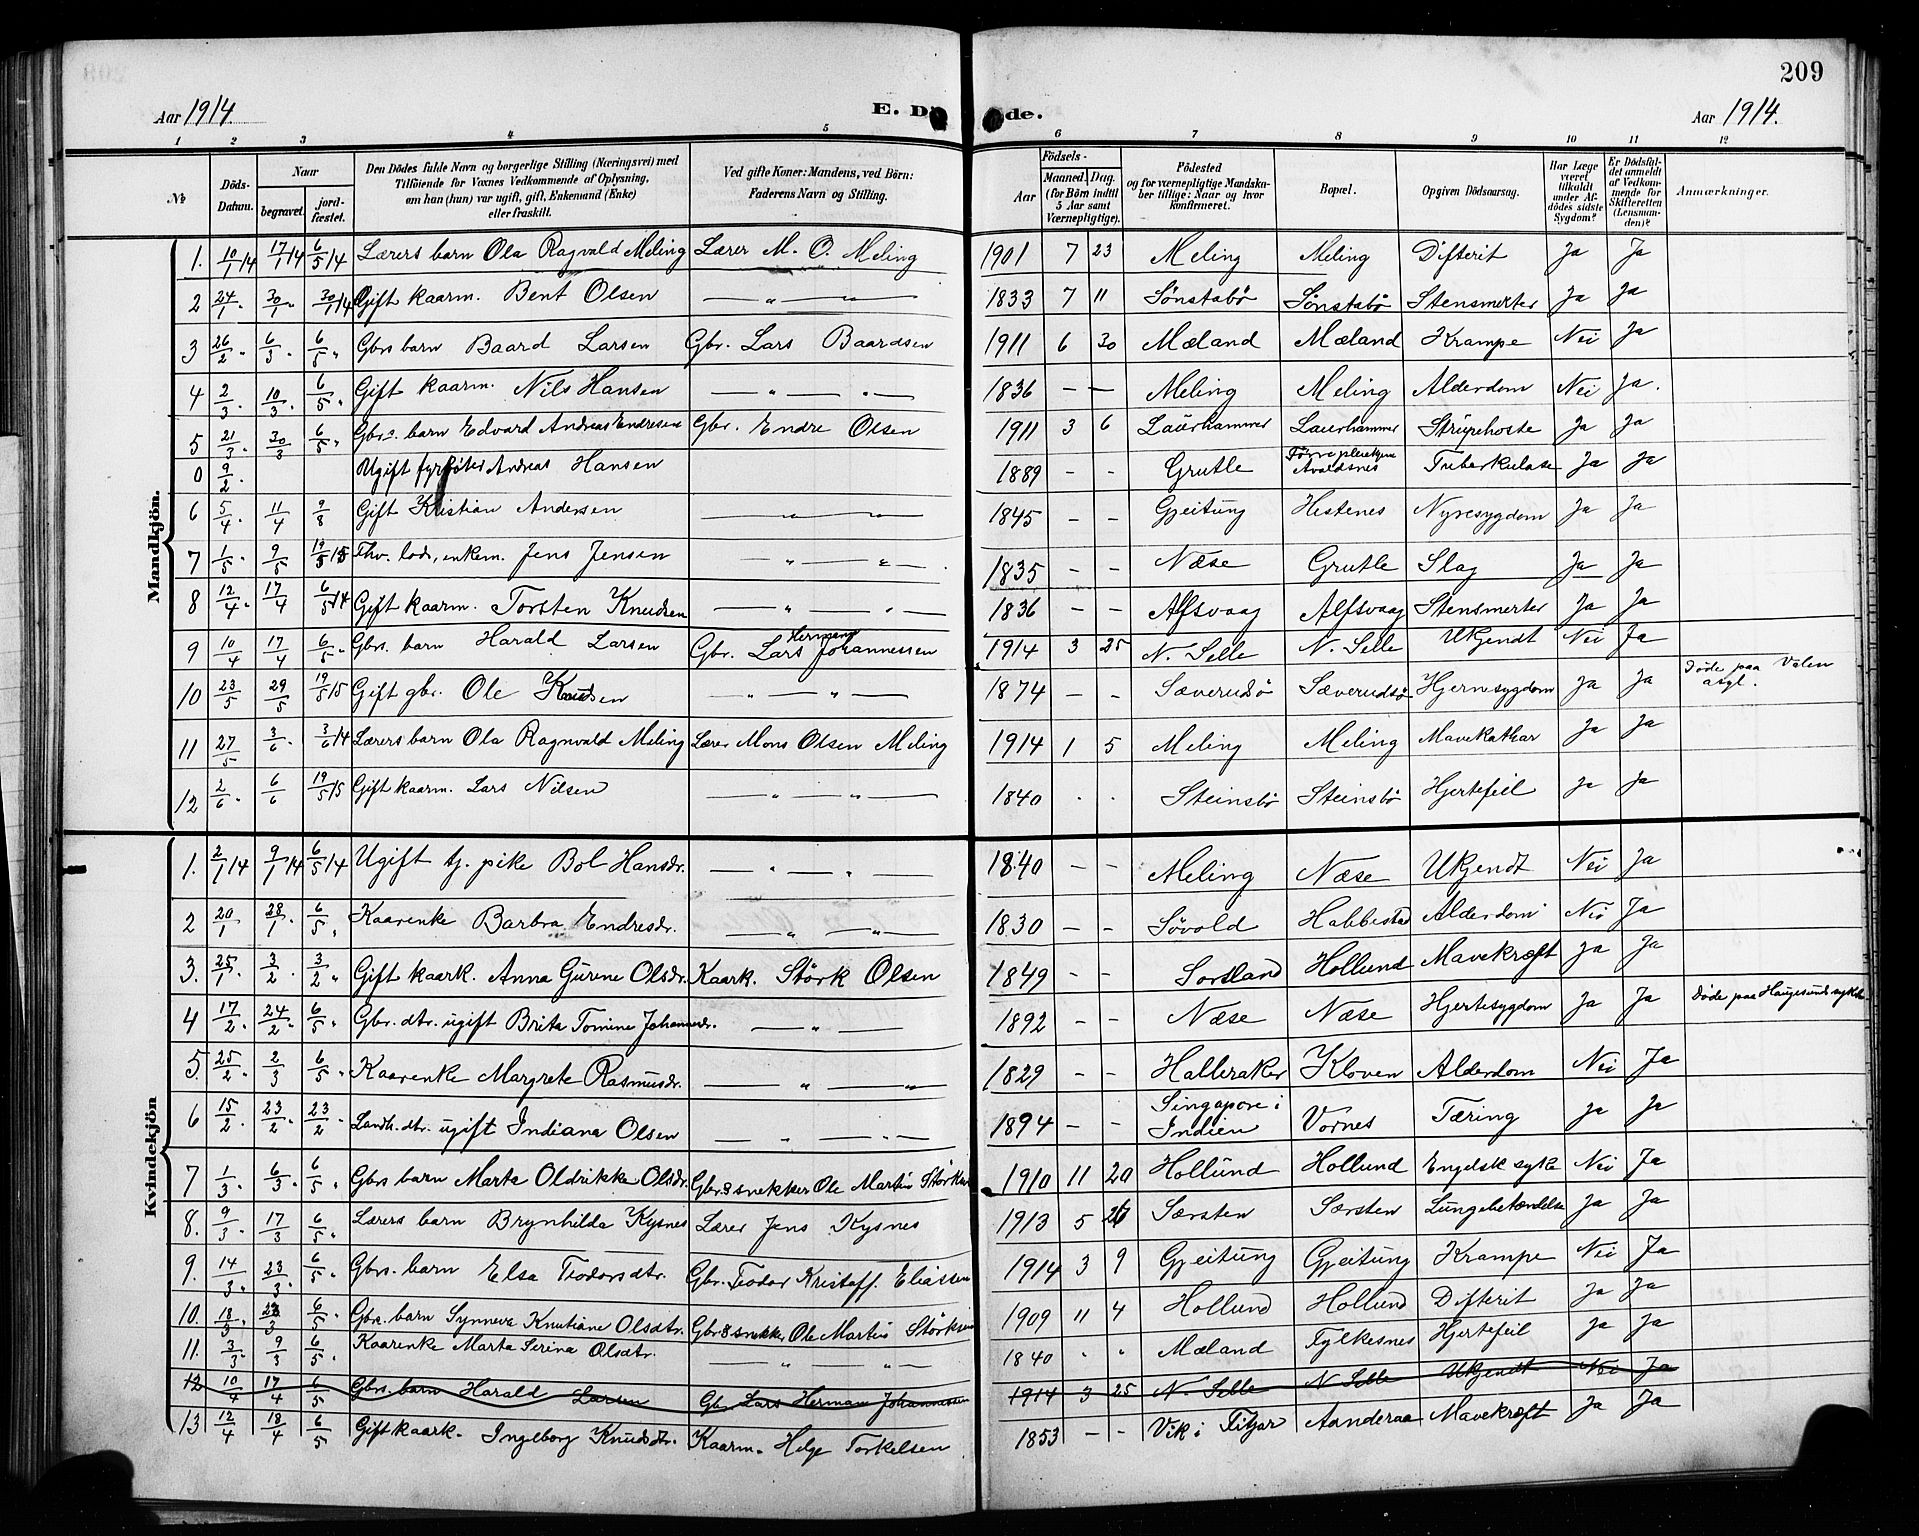 209
Aar 1914. E. D de. Aar 1914.
1 2 3 4 5 6 7 8 9 10 11 12
№ Döds-Datum. Naar begravet. jordfæstet. Den Dödes fulde Navn og borgerlige Stilling (Næringsvei) med Tilföiende for Voxnes Vedkommende af Oplysning, om han (hun) var ugift, gift, Enkemand (Enke) eller fraskilt. Ved gifte Koner: Mandens, ved Börn: Faderens Navn og Stilling. Födsels- Aar Maaned. Dag. (for Börn indtil 5 Aar samt Værnepligtige). Födested og for værnepligtige Mandskaber tillige: Naar og hvor konfirmeret. Bopæl. Opgiven Dödsaarsag. Har Læge været tilkaldt under Afdödes sidste Sygdom? Er Dödsfaldet anmeldt af Vedkommende for Skifteretten (Lensmanden)? Anmærkninger.
Mandkjön.
1. 10/1 14 17/1 14 6/5 14 Lærers barn Ola Ragvald Meling Lærer M. O. Meling 1901 7 23 Meling Meling Difterit Ja Ja
2 24/1 " 30/1 " 30/1 14 Gift kaarm. Bent Olsen — " — " — 1833 7 11 Sönstabö Sönstabö Stensmerter Ja Ja
3 26/2 " 6/3 " 6/5 " Gbrs barn Baard Larsen Gbr. Lars Baardsen 1911 6 30 Mæland Mæland Krampe Nei Ja
4 2/3 " 10/3 " 6/5 " Gift kaarm. Nils Hansen — " — " — 1836 — — Meling Meling Alderdom Nei Ja.
5 21/3 " 30/3 6/5 " Gbrs. barn Edvard Andreas Endresen Gbr. Endre Olsen 1911 3 6 Laurhammer Laurhammer Strupehoste Ja Ja
0 9/2 " Ugift Andreas Hansen 1889 - - Grutle Avaldsnes Tuberkulose Ja Ja
6 5/4 " 11/4 9/8 Gift Kristian Andersen — " — " — 1845 - - Gjeitung Hestenes Nyresygdom Ja Ja
7 1/5 " 9/5 19/5 15 Thv. lods, enkem. Jens Jensen " — " — 1835 - - Næse Grutle Slag Ja Ja
8 12/4 " 17/4 6/5 14 Gift kaarm. Torsten Knudsen — " — " — 1836 - - Alfsvaag Alfsvaag Stensmerter Ja Ja
9 10/4 17/4 6/5 " Gbrs. barn Harald Larsen Gbr. Lars Herman Johannessen 1914 3 25 N. Selle N. Selle Ukjendt Nei Ja
10 23/5 29/5 19/5 15 Gift gbr. Ole Knudsen — " — " — 1874 - - Sæverudsö Sæverudsö Hjernesygdom Ja Ja Döde paa Valen asyl.
11 27/5 3/6 " 3/6 14 Lærers barn Ola Ragnvald Meling Lærer Mons Olsen Meling 1914 1 5 Meling Meling Mavekathar Ja Ja
12 2/6 " 6/6 19/5 15 Gift kaarm. Lars Nilsen — " — " — 1840 " " Steinsbö Steinsbö Hjertefeil Ja Ja
Kvindekjön
1. 2/1 14 9/1 14 6/5 14 Ugift tj. pike Bol Hansdr. — " — " — 1840 - - Meling Næse Ukjendt Nei Ja
2 20/1 28/1 6/5 " Kaarenke Barbra Endresdr. — " — " — 1830 - - Sövold Habbestad Alderdom Nei Ja
3. 25/1 " 3/2 " 3/2 " Gift kaark. Anna Gurine Olsdr. Kaark. Störk Olsen 1849 - - Sortland Hollund Mavekræft Ja Ja
4 17/2 " 24/2 " 6/5 " Gbr. dtr. ugift Brita Tomine Johannesdr. — " — 1892 - - Næse Næse Hjertesygdom Ja Ja Döde paa Haugesunds sykehus
5. 25/2 " 2/3 6/5 " Kaarenke Margrete Rasmusdr. — " — " 1829 - - Halleraker Kloven Alderdom Nei Ja
6 15/2 " 23/2 " 23/2 " Landh. dtr. ugift Indiana Olsen — " — " — 1894 - - Singapore i Indien Vornes Tæring Ja Ja
7 1/3 " 6/3 " 6/5 " Gbrs barn Marta Oldrikke Olsdr. Gbr. & snekker Ole Martin Störksen 1910 11 20 Hollund Hollund Engelsk syke Nei Ja
8. 9/3 " 17/3 6/5 " Lærers barn Brynhilda Kysnes Lærer Jens Kysnes 1913 5 26 Særsten Særsten Lungebetændelse Ja Ja
9. 14/3 " 23/3 " 6/5 " Gbrs. barn Elsa Teodorsdtr. Gbr. Teodor Kristoff. Eliassen 1914 3 9 Gjeitung Gjeitung Krampe Nei Ja
10. 18/3 " 23/3 6/5 " Gbr. barn Synneva Knutiane Olsdtr. Gbr. & snekker Ole Martin Störksen 1909 11 4 Hollund Hollund Difterit Ja Ja
11. 3/3 " 9/3 6/5 " Kaarenke Marta Serina Olsdtr. — " — " — 1840 " " Mæland Fylkesnes Hjertefeil Ja Ja
12 10/4 17/4 6/5 Gbrs. barn Harald Larsen Gbr. Lars Herman Johannessen 1914 3 25 N. Selle N. Selle Ukjendt Nei Ja
13 12/4 18/4 6/5 Gift kaark. Ingeborg Knudsdtr. Kaarm. Helge Torkelsen 1853 - - Vik i Fitjar Aanderaa Mavekræft Ja Ja